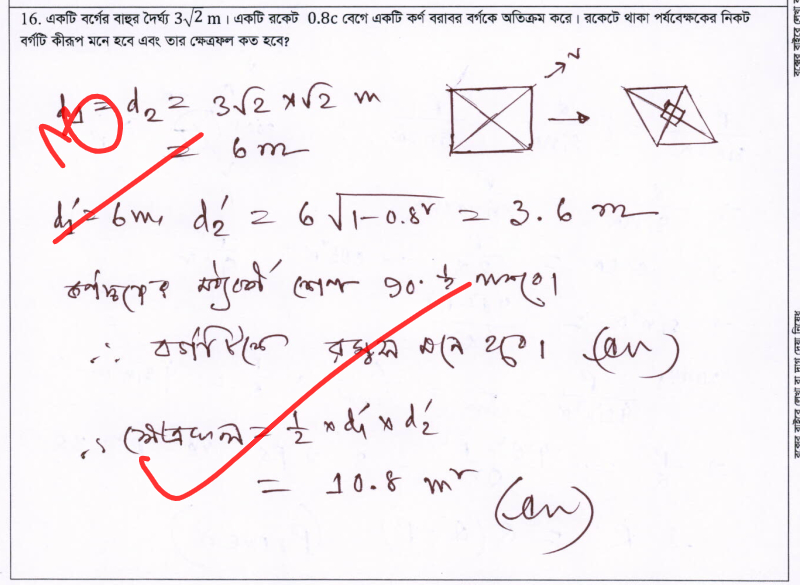 16. একটি বর্গের বাহুর দৈর্ঘ্য 3√2 m। একটি রকেট 0.8c বেগে একটি কর্ণ বরাবর বর্গকে অতিক্রম করে। রকেটে থাকা পর্যবেক্ষকের নিকট
বর্গটি কীরূপ মনে হবে এবং তার ক্ষেত্রফল কত হবে?
d₁ = d₂ = 3√2 × √2 m
= 6 m
d₁′ = 6m, d₂′ = 6√1-0.8² = 3.6 m
কর্ণদ্বয়ের মধ্যবর্তী কোণ 90°
∴ বর্গটিকে রম্বস মনে হবে। (Ans)
∴ ক্ষেত্রফল = ½ × d₁′ × d₂′
= 10.8 m² (Ans)